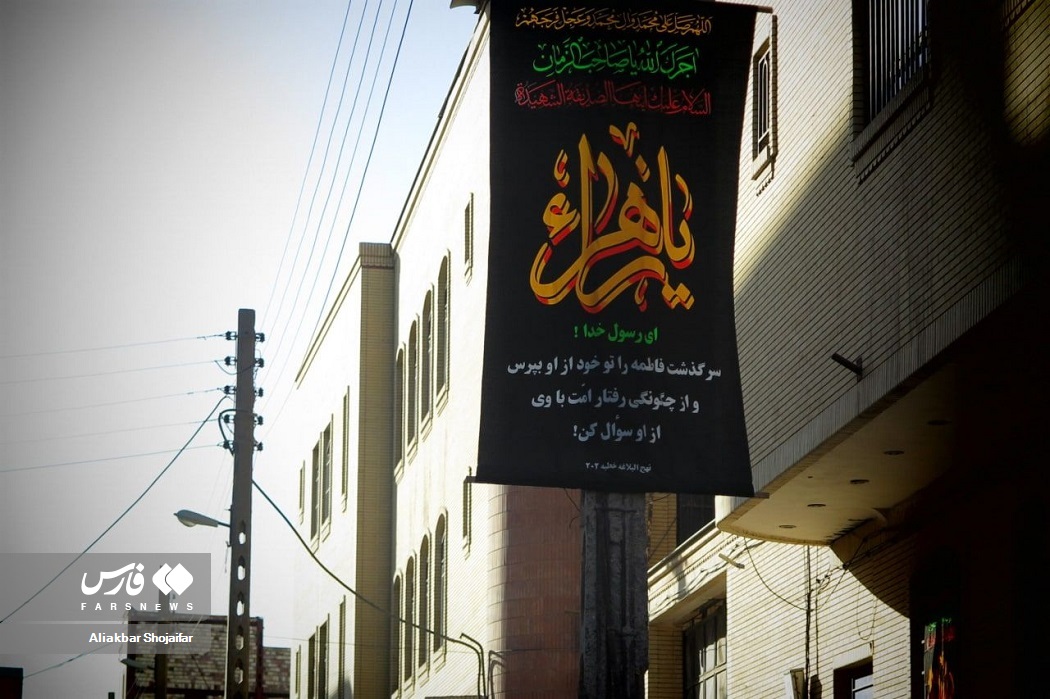 اللهم صل علی محمد و آل محمد و عجل فرجهم
اجرک الله یا صاحب الزمان
السلام علیک ایتها الصدیقة الشهیدة
یا زهراء
ای رسول خدا !
سرگذشت فاطمه را تو خود از او بپرس
و از چگونگی رفتار امّت با وی
از او سؤال کن!
نهج البلاغه خطبه ۲۰۲
فارس
FARSNEWS
Aliakbar Shojaifar